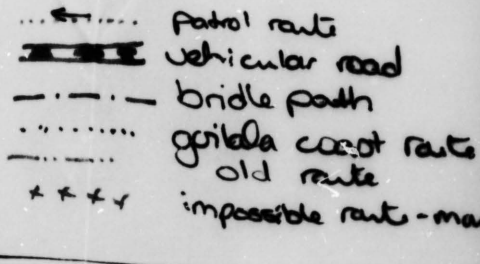 patrol route
vehicular road
bridle path
coast route
old route
impossible route-